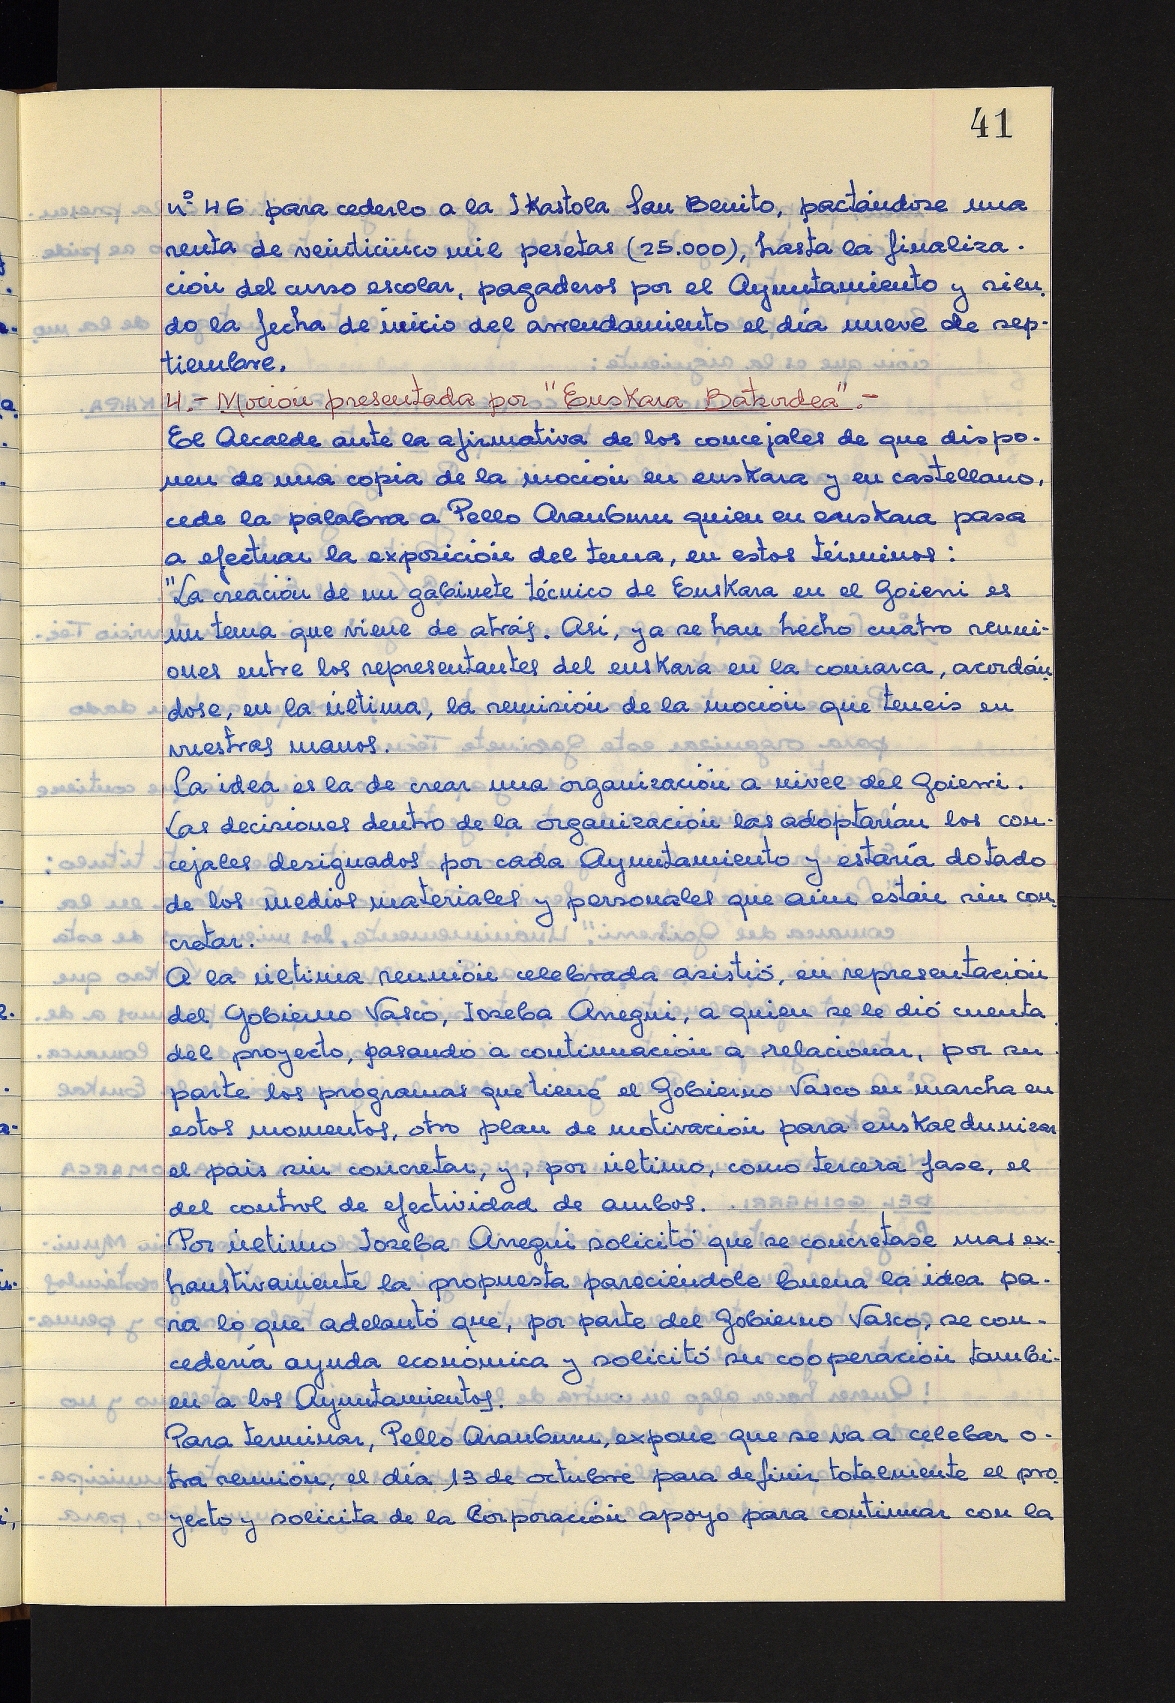 41
nº 46 para cederlo a la Ikastola San Benito, pactándose una
renta de veinticinco mil pesetas (25.000), hasta la finaliza-
ción del curso escolar, pagaderos por el Ayuntamiento y sien-
do la fecha de inicio del arrendamiento el día nueve de sep-
tiembre.
4.- Moción presentada por "Euskara Batzordea".-
El Alcalde ante la afirmativa de los concejales de que dispo-
nen de una copia de la moción en euskara y en castellano,
cede la palabra a Pello Aramburu quien en euskara pasa
a efectuar la exposición del tema, en estos términos:
"La creación de un gabinete técnico de Euskara en el Goierri es
un tema que viene de atrás. Así, ya se han hecho cuatro reuni-
ones entre los representantes del euskara en la comarca, acordán-
dose, en la última, la remisión de la moción que teneis en
vuestras manos.
La idea es la de crear una organización a nivel del Goierri.
Las decisiones dentro de la organización las adoptarían los con-
cejales designados por cada Ayuntamiento y estaría dotado
de los medios materiales y personales que aún están sin con-
cretar.
A la última reunión celebrada asistió, en representación
del Gobierno Vasco, Ioseba Arregui, a quien se le dió cuenta
del proyecto, pasando a continuación a relacionar, por su
parte los programas que tiene el Gobierno Vasco en marcha en
estos momentos, otro plan de motivación para euskaldunizar
el pais sin concretar, y, por último, como tercera fase, el
del control de efectividad de ambos.
Por último Ioseba Arregui solicitó que se concretase mas ex-
haustivamente la propuesta pareciéndole buena la idea pa-
ra lo que adelantó que, por parte del Gobierno Vasco, se con-
cedería ayuda económica y solicitó su cooperación tambi-
en a los Ayuntamientos.
Para terminar, Pello Aramburu, expone que se va a celebar o-
tra reunión, el día 13 de octubre para definir totalmente el pro-
yecto y solicita de la Corporación apoyo para continuar con la